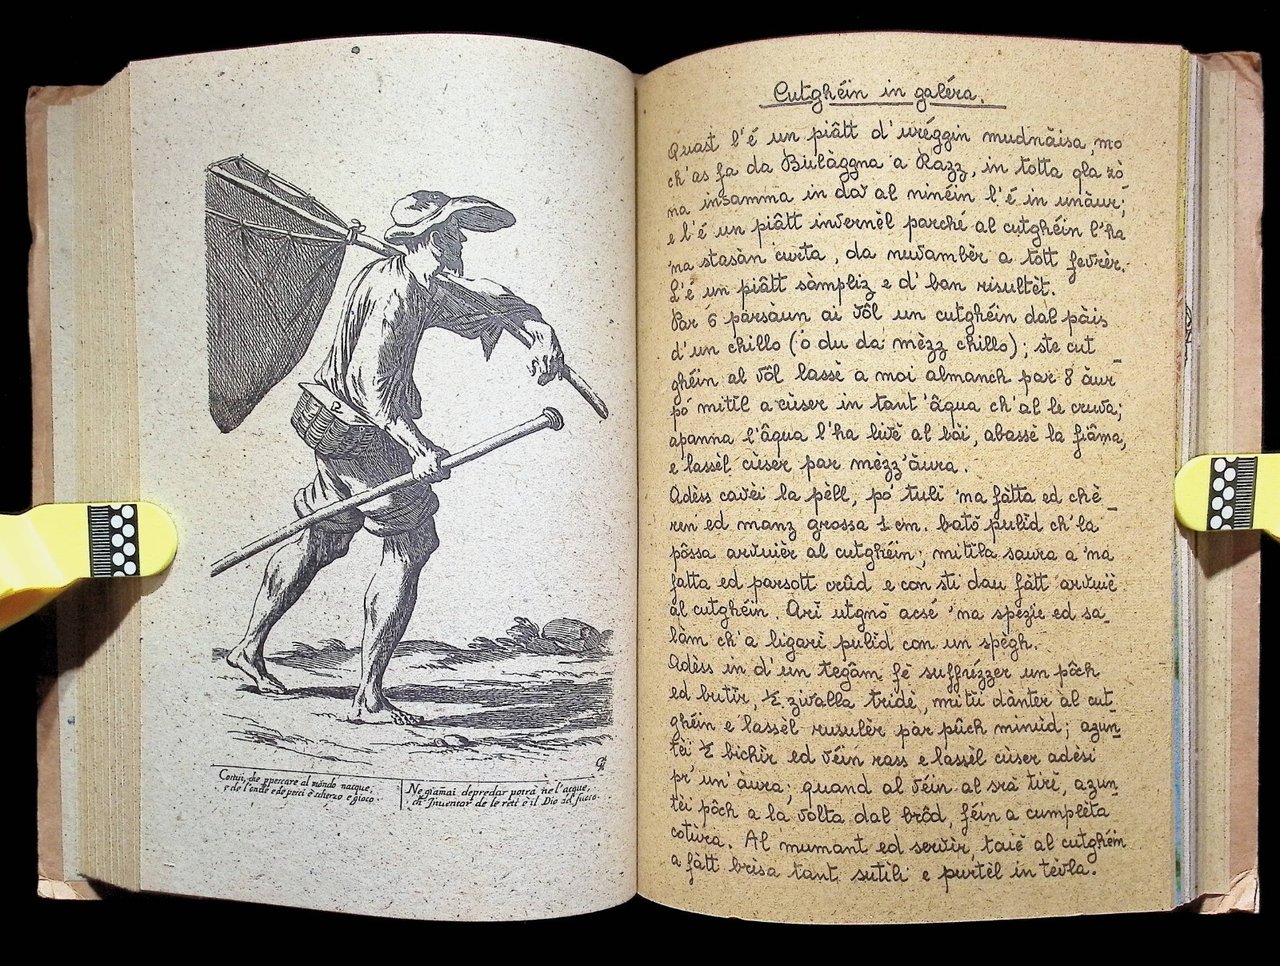 Costui, che ppescare al mondo nacque,
e de l'onde e de pesci è scherzo e gioco.
Ne giamai depredar potrà ne l'acque,
ch'Inventor de le reti è il Dio del fuoco.
Cutghéin in galéra.
Quast l'é un piâtt d'uréggin mudnäisa, mo
ch'as fa da Bulåggna a Razz, in totta qla zò
na insamma in dav al ninéin l'é in unåur;
e l'é un piâtt invernèl parché al cutghéin l'ha
'na stasån curta, da nuvambèr a tott fevrèr.
L'é un piâtt sàmpliz e d'ban risultèt.
Par 6 parsåun ai vôl un cutghéin dal pàis
d'un chillo (ó du da mèzz chillo); ste cut_
ghéin al vôl lassè a moi almanch par 8 åur
pó mitîl a cùser in tant'âqua ch'al le cruva;
apanna l'âqua l'ha livè al bòi, abassè la fiâma,
e lassèl cùser par mèzz'åura.
Adèss cavèi la pèll, pó tulî 'na fàtta ed chè_
ren ed manz grossa 1 cm. batö pulîd ch'la
pôssa arvuièr al cutghéin; mitîla saura a 'na
fatta ed parsott crûd e con sti dau fàtt arvuiè
al cutghéin. Arî utgnö acsé 'na spèzie ed sa_
làm ch'a ligarî pulîd con un spègh.
Adèss in d'un tegâm fè suffrézzer un pôch
ed butîr, ½ zivalla tridè, mitìi dànter àl cut_
ghéin e lassèl rusulèr pàr pûch minùd; azun_
tèi ½ bichîr ed véin rass e lassèl cùser adèsi
pr'un'åura; quand al véin al srà tirè, azun_
tèi pôch a la vôlta dal brôd, féin a cumplèta
cotùra. Al mumant ed servìr, taiè al cutghéin
a fàtt brisa tant sutîli e purtèl in tèvla.